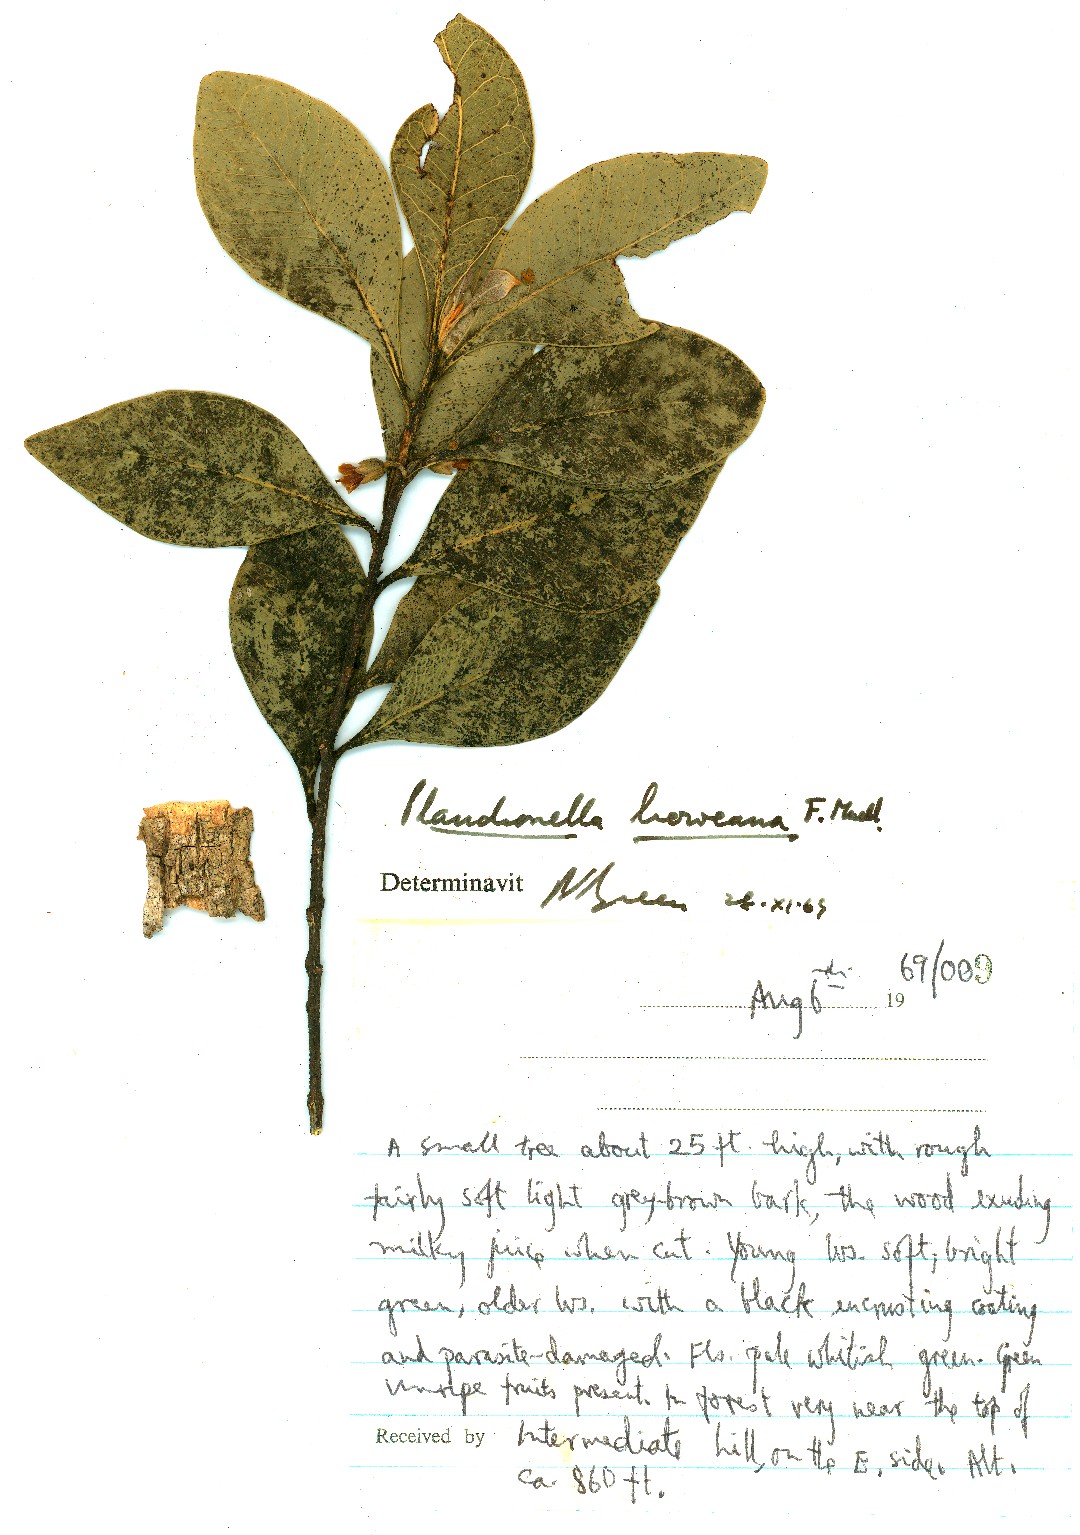 Planchonella howeana F. Muell.
Determinavit PSGreen 28.XI.69
69/009
Aug 6th 19
A small tree about 25 ft. high, with rough
fairly soft light grey-brown bark, the wood exuding
milky juice when cut. Young lvs. soft, bright
green, older lvs. with a black encrusting coating
and parasite-damaged. Fls. pale whitish green. Green
unripe fruits present. In forest very near the top of
Received by Intermediate hill, on the E. side. Alt.
ca. 860 ft.